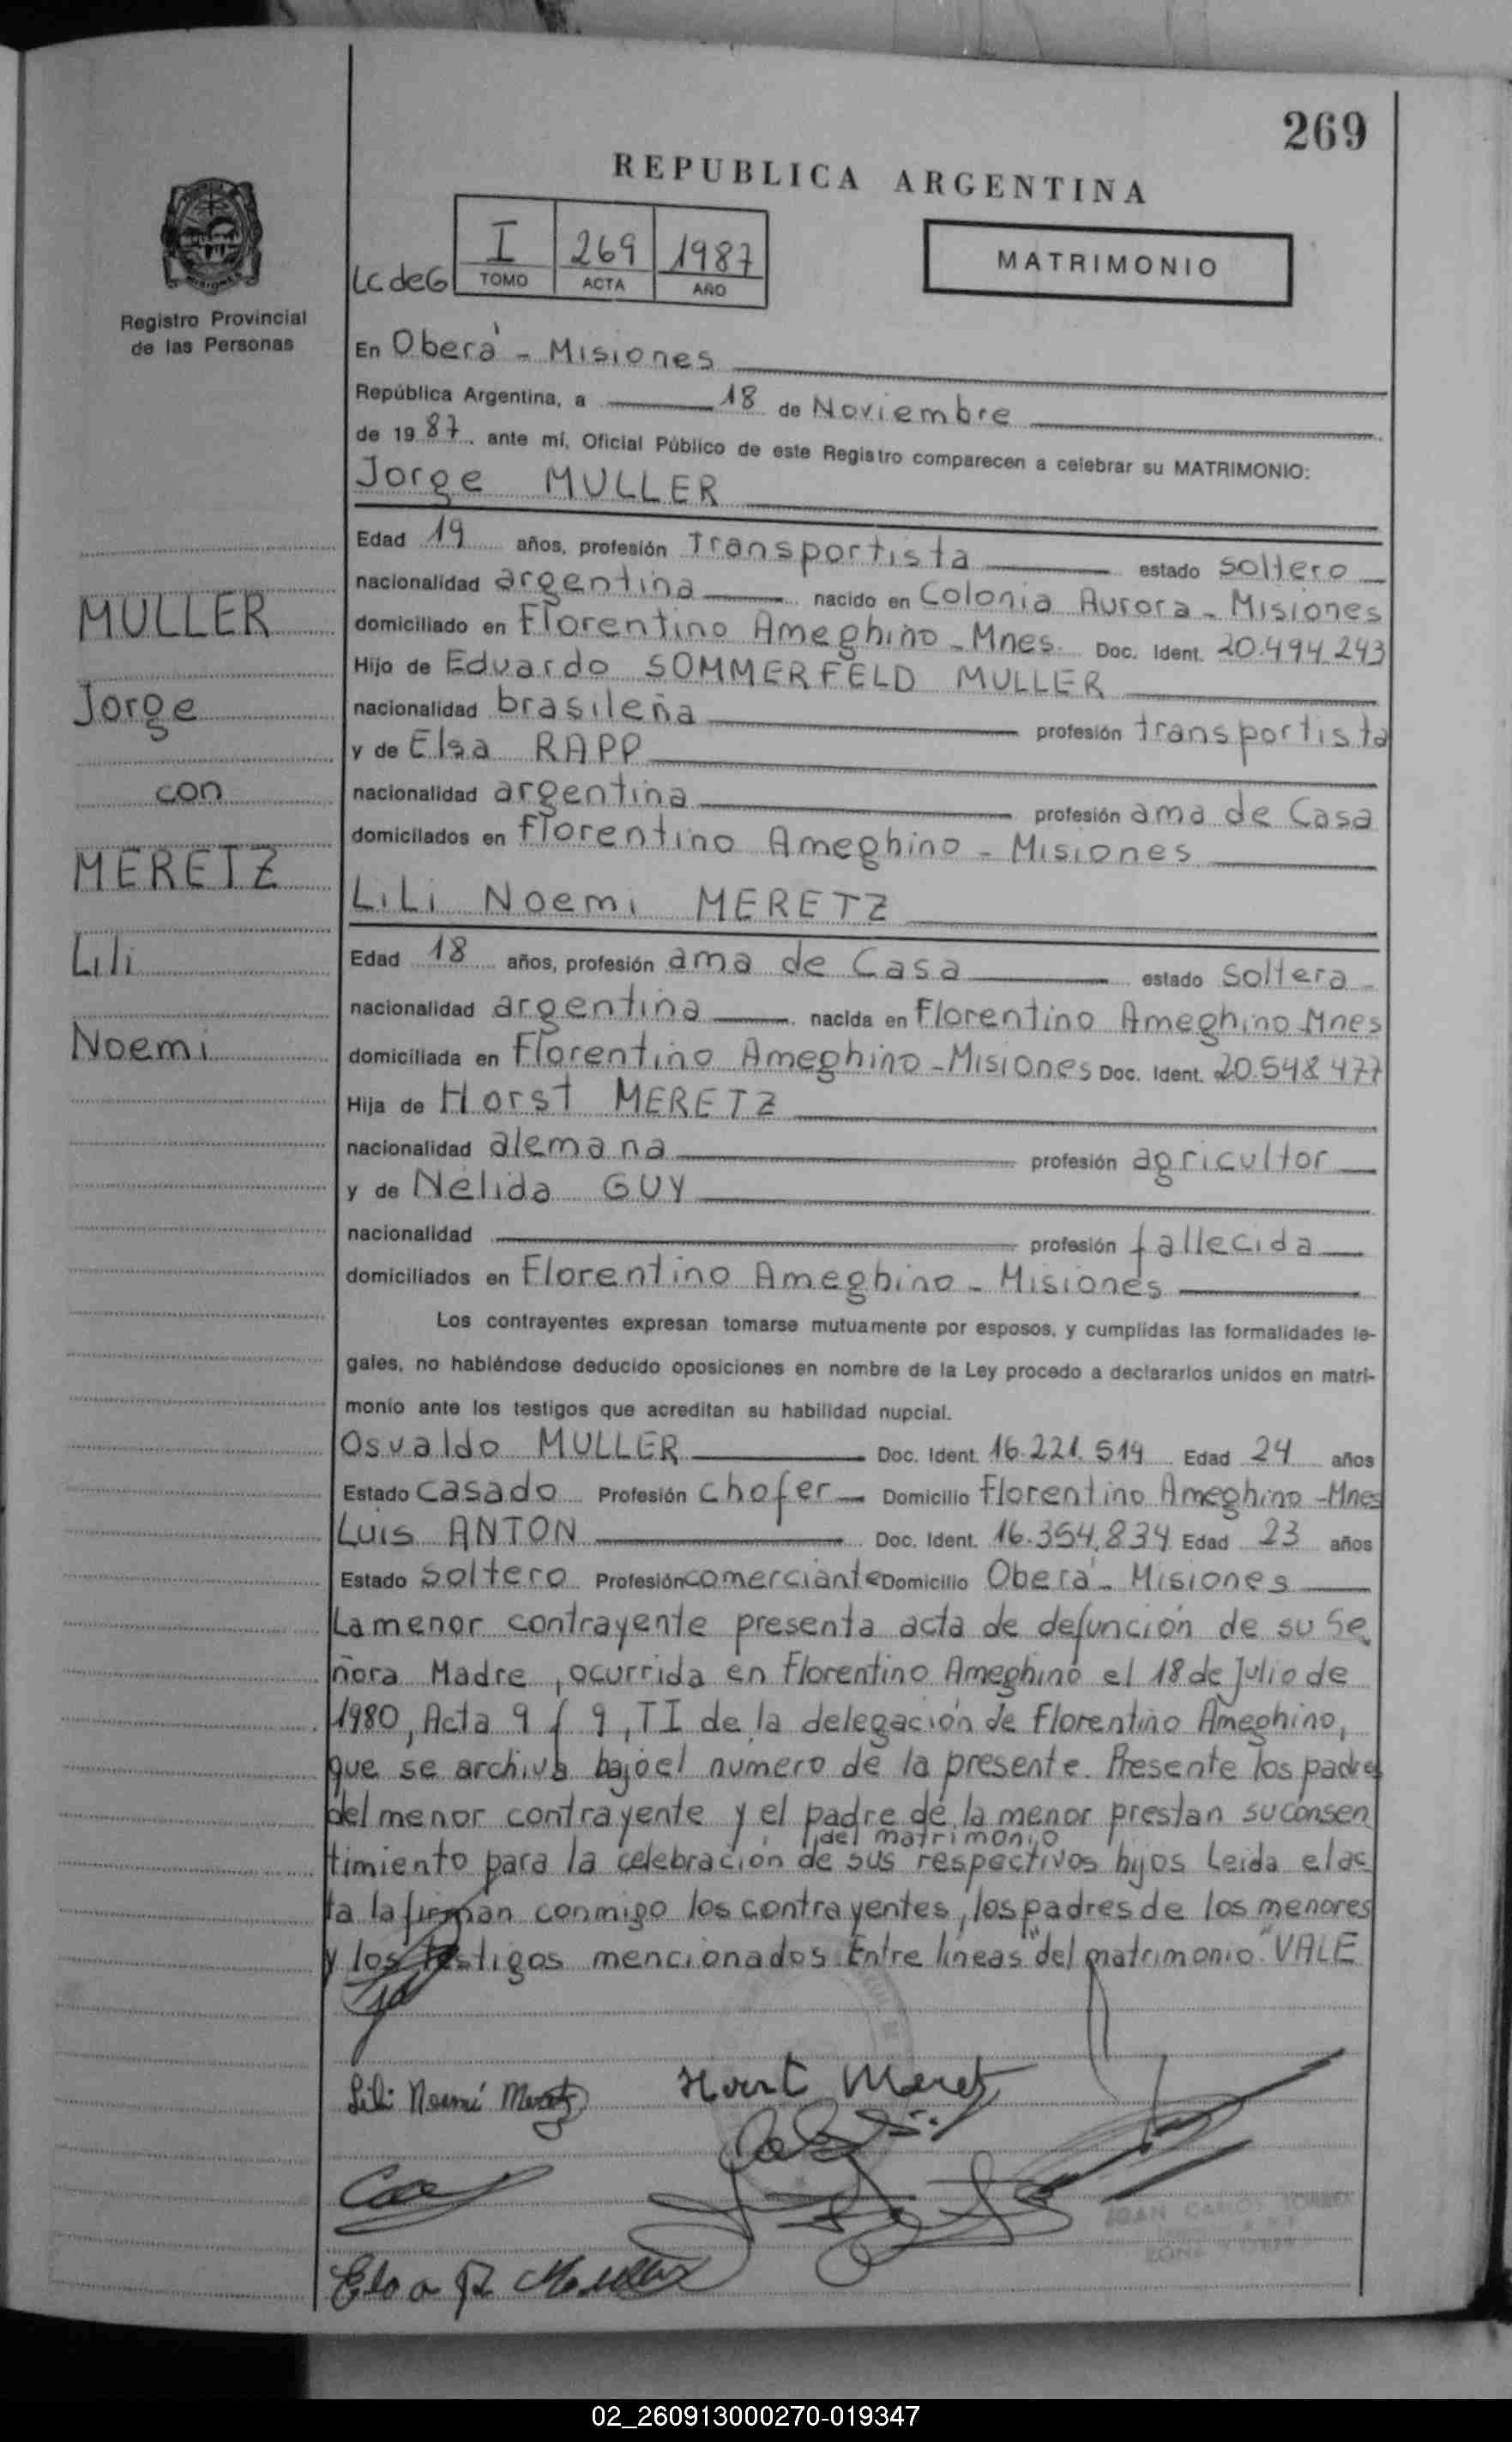 269
REPUBLICA ARGENTINA
I 269 1987
LC de G TOMO ACTA AÑO
MATRIMONIO
Registro Provincial
de las Personas
En Oberá - Misiones
República Argentina, a 18 de Noviembre
de 1987, ante mí, Oficial Público de este Registro comparecen a celebrar su MATRIMONIO:
Jorge MULLER
Edad 19 años, profesión Transportista estado soltero
nacionalidad argentina nacido en Colonia Aurora - Misiones
domiciliado en Florentino Ameghino - Mnes. Doc. Ident. 20.494.243
Hijo de Eduardo SOMMERFELD MULLER
nacionalidad brasileña profesión transportista
y de Elsa RAPP
nacionalidad argentina profesión ama de Casa
domicilados en Florentino Ameghino - Misiones
LiLi Noemi MERETZ
Edad 18 años, profesión ama de Casa estado soltera
nacionalidad argentina nacida en Florentino Ameghino-Mnes
domiciliada en Florentino Ameghino - Misiones Doc. Ident. 20.548.477
Hija de Horst MERETZ
nacionalidad alemana profesión agricultor
y de Nélida GUY
nacionalidad profesión fallecida
domiciliados en Florentino Ameghino - Misiones
Los contrayentes expresan tomarse mutuamente por esposos, y cumplidas las formalidades le-
gales, no habiéndose deducido oposiciones en nombre de la Ley procedo a declararlos unidos en matri-
monio ante los testigos que acreditan su habilidad nupcial.
Osvaldo MULLER Doc. Ident. 16.221.514 Edad 24 años
Estado Casado Profesión chofer Domicilio Florentino Ameghino -Mnes
Luis ANTON Doc. Ident. 16.354.834 Edad 23 años
Estado soltero Profesión comerciante Domicilio Oberá - Misiones
La menor contrayente presenta acta de defunción de su Se
ñora Madre, ocurrida en Florentino Ameghino el 18 de Julio de
1980, Acta 9 f 9, TI de la delegación de Florentino Ameghino,
que se archiva bajo el numero de la presente. Presente los padres
del menor contrayente y el padre de la menor prestan su consen
del matrimonio
timiento para la celebración de sus respectivos hijos Leida el ac
ta la firman conmigo los contrayentes, los padres de los menores
y los testigos mencionados. Entre líneas "del matrimonio" VALE
MULLER
Jorge
con
MERETZ
Lili
Noemi
Lili Noemí Meretz
Horst Meretz
Elsa R Muller
02_260913000270-019347